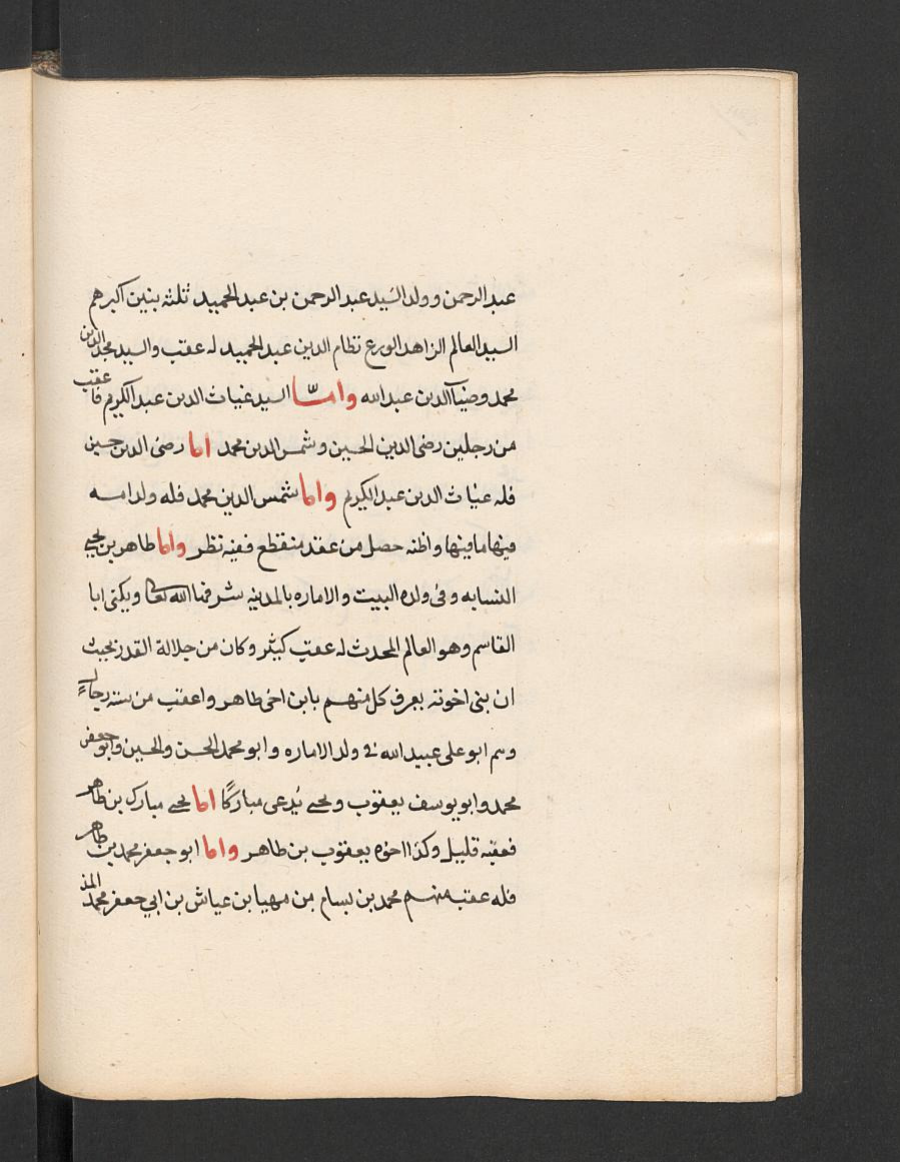 عبد الرحمن وولد السيد عبد الرحمن بن عبد الحميد ثلثه بنين اكبرهم
السيد العالم الزاهد الورع نظام الدين عبد الحميد له عقب والسيد مجد الدين
محمد وضياالدين عبد الله وامّا السيد غياث الدين عبد الكريم فاعقب
من رجلين رضى الدين الحسين وشمس الدين محمد اما رضى الدين حسين
فله غياث الدين عبد الكريم واما شمس الدين محمد فله ولد امه
فيها ما فيها واظنه حصل من عقد منقطع ففيه نظر واما طاهر بن يحيى
النسابه وفى ولده البيت والاماره بالمدينه شرفها الله تعا ويكنى ابا
القاسم وهو العالم المحدث له عقب كثير وكان من جلالة القدر بحيث
ان بنى اخوته يعرف كل منهم بابن اخى طاهر واعقب من سته رجال
وهم ابو على عبيد الله فى ولد الاماره وابو محمد الحسن والحسين وابو جعفر
محمد وابو يوسف يعقوب ويحيى يُدعى مباركًا اما يحيى مبارك بن طاهر
فعقبه قليل وكذا اخوه يعقوب بن طاهر واما ابو جعفر محمد بن طاهر
فله عقب منهم محمد بن بسام بن مهيا بن عياش بن ابي جعفر محمد